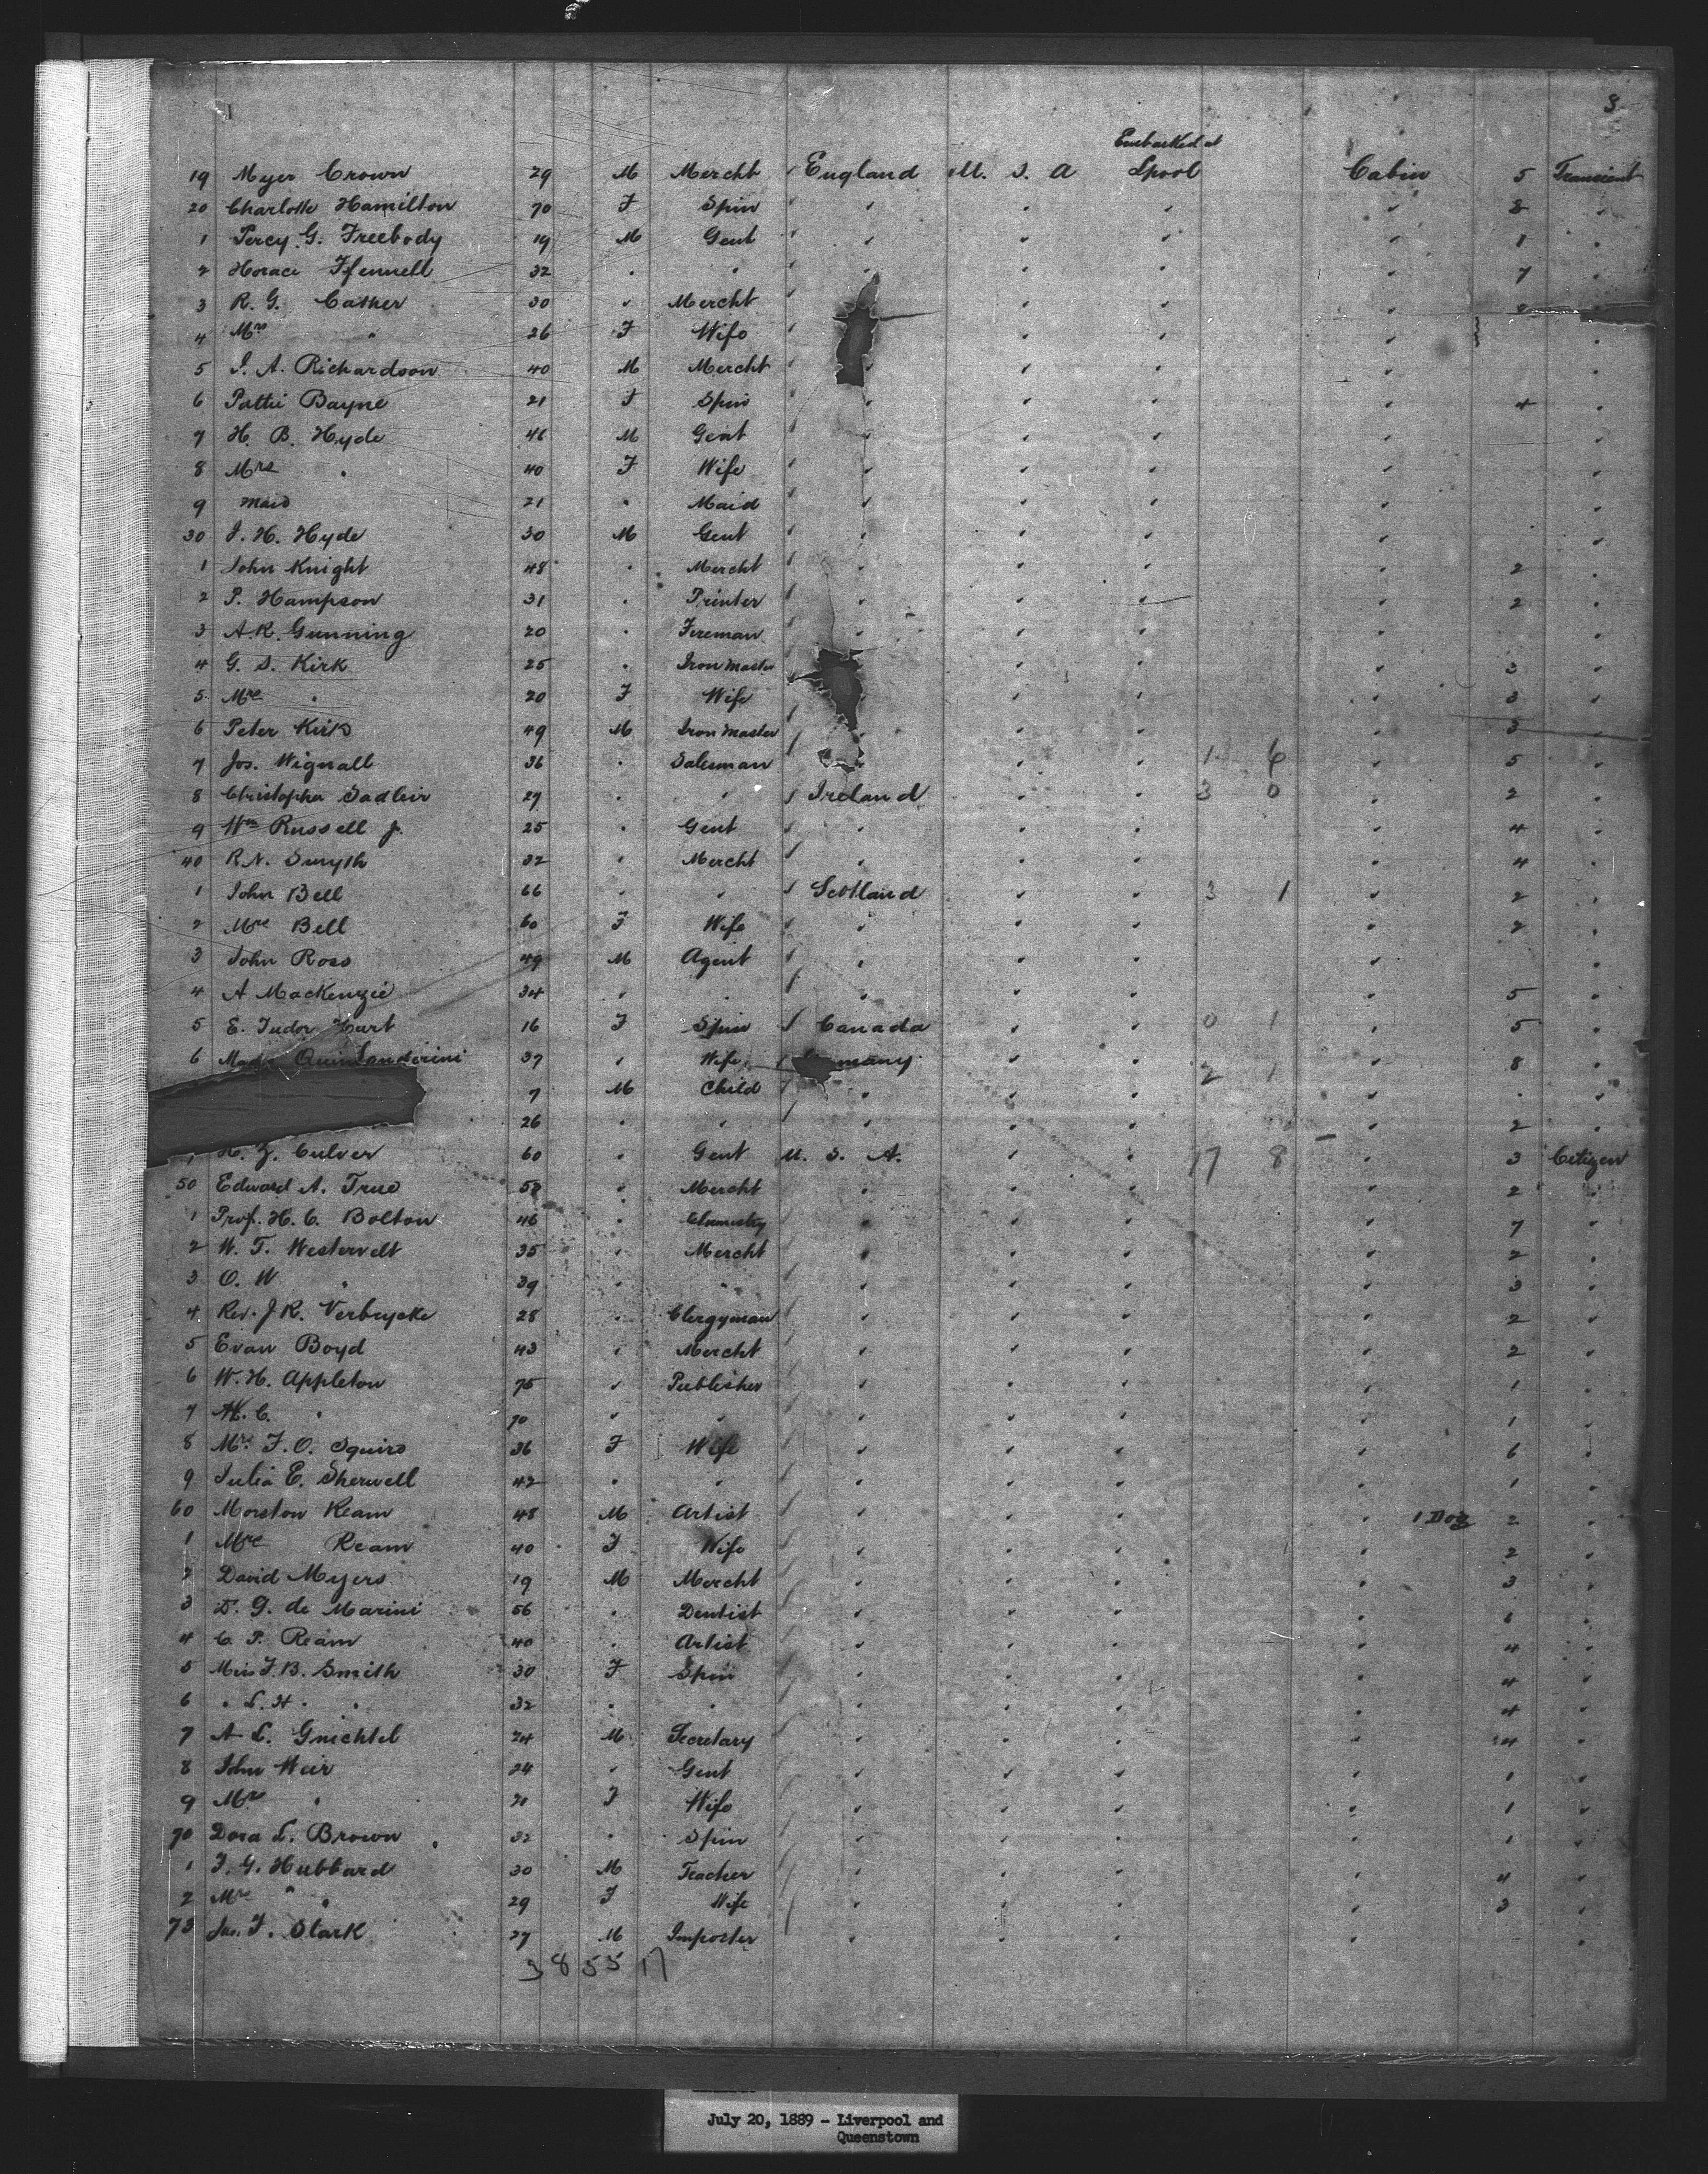 3
Embarked at
19 Myer Crown 29 M Mercht England U. S. A Lpool Cabin 5 Transient
20 Charlotte Hamilton 70 F Spin " " " " 8 "
1 Percy G. Freebody 19 M Gent " " " " 1 "
2 Horace Ffennell 32 " " " " " " 7 "
3 R. G. Casher 30 " Mercht " " "
4 Mrs " 26 F Wife " " " "
5 J. A. Richardson 40 M Mercht " " " " "
6 Pattie Bayne 21 F Spin " " " " 4 "
7 H. B. Hyde 46 M Gent " " " " "
8 Mrs " 40 F Wife " " " " "
9 Maid 21 " Maid " " " "
30 J. H. Hyde 30 M Gent " " " " "
1 John Knight 48 " Mercht " " " " 2 "
2 P. Hampson 31 " Printer " " " " 2 "
3 A.R. Gunning 20 " Fireman " " " " "
4 G. S. Kirk 25 " Iron Master " " " 3 "
5 Mrs " 20 F Wife " " " 3 "
6 Peter Kirk 49 M Iron Master " " " " 3 "
7 Jos. Wignall 36 " Salesman " " 1 6 " 5 "
8 Christopher Sadleir 27 " " Ireland " " 3 0 " 2 "
9 Wm Russell J. 25 " Gent " " " " 4 "
40 R.N. Smyth 32 " Mercht " " " " 4 "
1 John Bell 66 " " Scotland " " 3 1 " 2 "
2 Mrs Bell 60 F Wife " " " " 2 "
3 John Ross 49 M Agent " " " " "
4 A MacKenzie 34 " " " " " " 5 "
5 E. Tudor Hart 16 F Spin Canada " " 0 1 " 5 "
6 37 " Wife many " " 2 1 " 8 "
7 M Child " " " " " "
26 " " " " " " 2 "
H. Z. Culver 60 " Gent U. S. A. " " 17 8 " 3 Citizen
50 Edward A. True 52 " Mercht " " " " 2 "
1 Prof. H. C. Bolton 46 " Chemistry " " " " 7 "
2 W. T. Westervelt 35 " Mercht " " " " 2 "
3 O. W " 39 " " " " " " 3 "
4 Rev. J.R. Verbrycke 28 " Clergyman " " " " 2 "
5 Evan Boyd 43 " Mercht " " " " 2 "
6 W. H. Appleton 75 " Publisher " " " " 1 "
7 M. C. " 70 " " " " " " 1 "
8 Mrs F. O. Squire 36 F Wife " " " " 6 "
9 Julia E. Sherwell 42 " " " " " " 1 "
60 Morston Ream 48 M Artist " " " " 1 Dog 2 "
1 Mrs Ream 40 F Wife " " " " 2 "
2 David Myers 19 M Mercht " " " " 3 "
3 D. G. de Marini 56 " Dentist " " " " 6 "
4 C. P. Ream 40 " Artist " " " " 4 "
5 Miss F.B. Smith 30 F Spin " " " " 4 "
6 " L. H. " 32 " " " " " " 4 "
7 A L. Gnichtel 24 M Secretary " " " " 4 "
8 John Weir 24 " Gent " " " " 1 "
9 Mrs " 21 F Wife " " " " 1 "
70 Dora L. Brown 32 " Spin " " " " 1 "
1 F. G. Hubbard 30 M Teacher " " " " 4 "
2 Mrs " " 29 F Wife " " " " 3 "
73 Jas. F. Stark 27 M Importer " " " " "
38 55 17
July 20, 1889 - Liverpool and
Queenstown